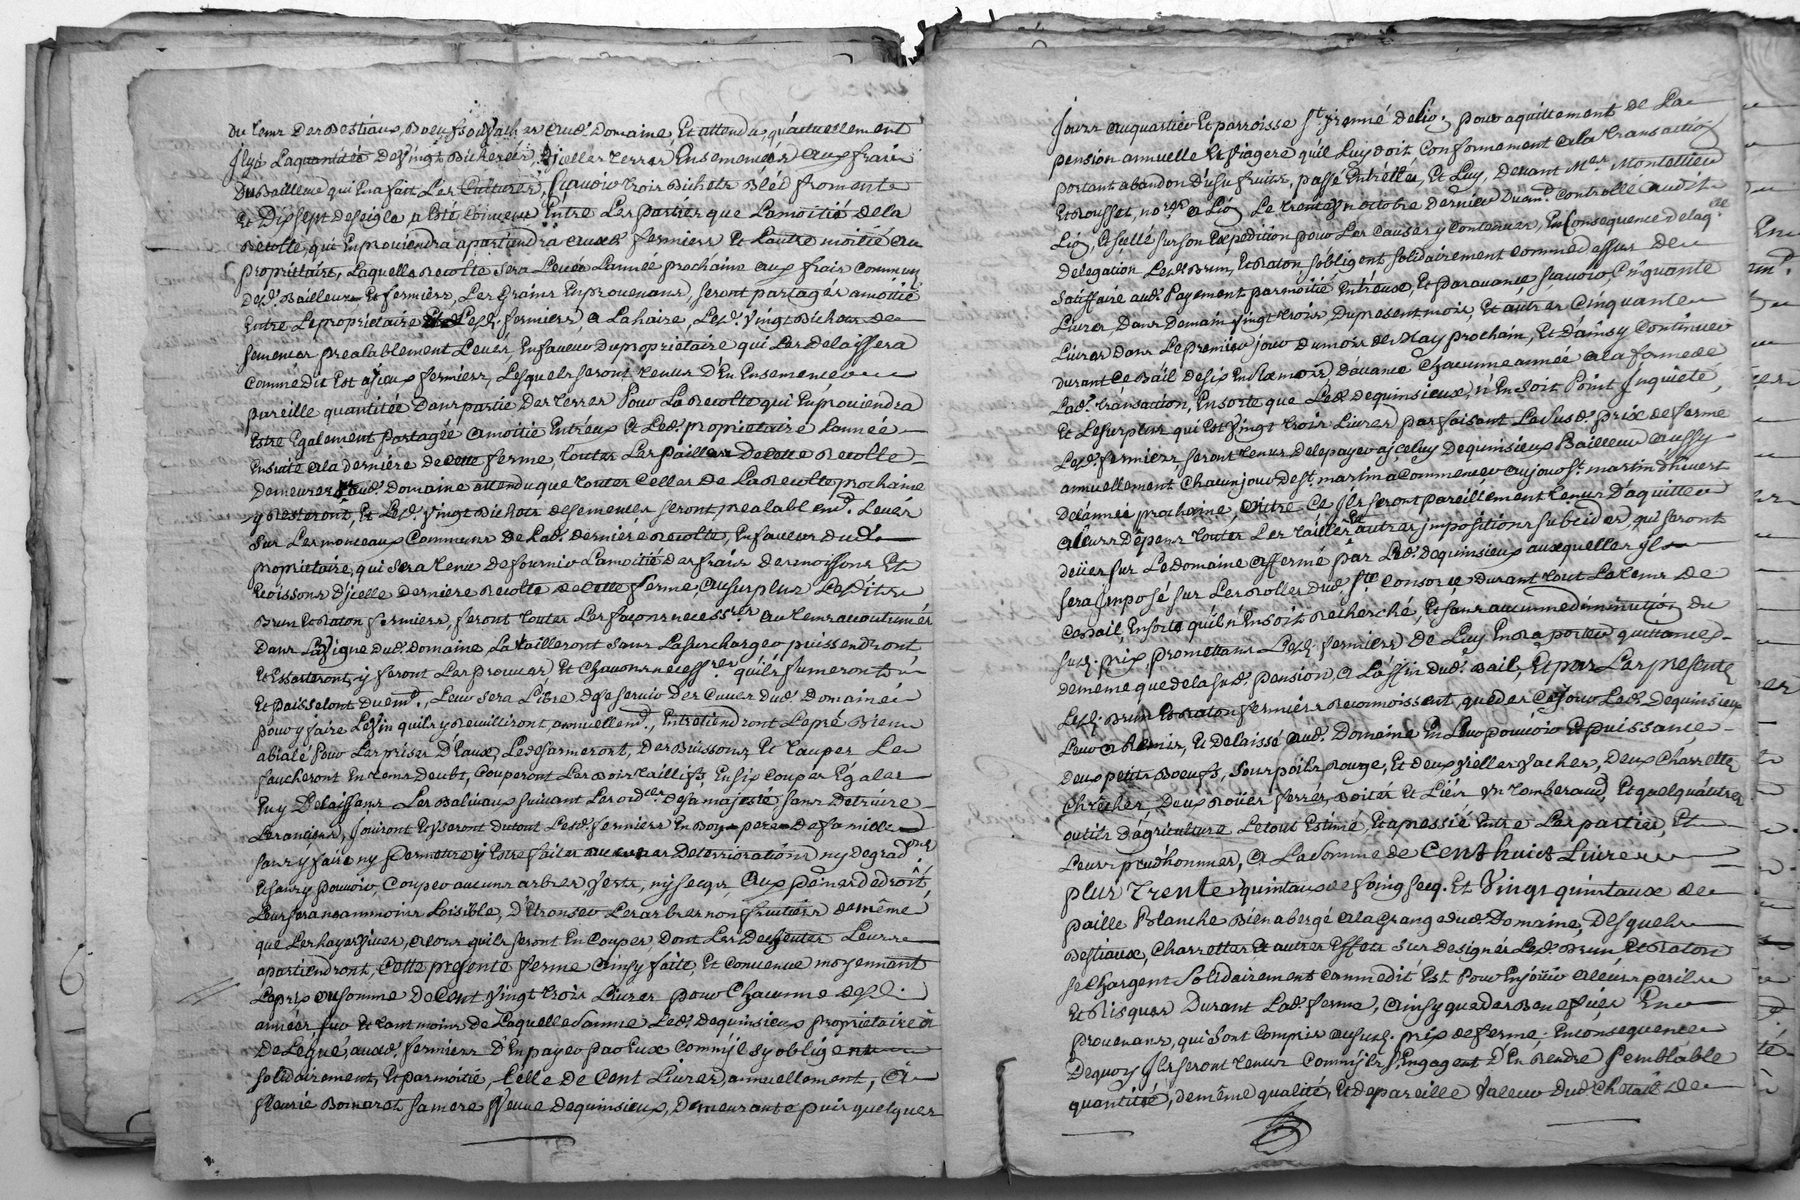 du tems des Bestiaux, Boeufs ou vaches audt. Domaine Et attendu qu'actuellement
Jlya La quantité de Vingt Bicherées, d'jcelles terres Ensemencées aux fraix
Du Bailleur qui En a fait Les Cultures, Sçavoir trois Bichets Bléd froment
Et Dixsept de seigle, a Eté Convenu Entre Les parties que La moitié de la
Recolte, qui En proviendra apartiendra auxdt. fermiers Et L'autre moitié au
propriétaire, Laquelle Recolte sera Levée L'année prochaine aux fraix communs
Desdt. Bailleur Et fermiers, Les Grains En provenans, seront partagés a moitié
Entre Le propriétaire Et Lesdt. fermiers, a Lahaire, Lesdt. Vingt Bichets de
semences prealablement Levés En faveur Du propriétaire qui Les delaissera
Comme dit Est a jceux fermiers, Lesquels seront tenus D'En Ensemencer
pareille quantitée Dans partie Des terres Pour La Recolte qui En proviendra
Estre Egalement partagée a moitié Entr'eux Et Ledt. propriétaire L'année
Ensuite a la derniére de cette ferme, toutes Les pailles De cette Recolte
Demeureront audt. Domaine attendu que toutes Celles de La Recolte prochaine
y Resteront, Et Lesdt. Vingt Bichets de semences seront prealablemt. Levés
Sur Les monceaux Communs de Ladt. derniére Recolte, En faveur dudt.
propriétaire, qui sera tenu de fournir La moitié des fraix des moissons Et
Ecossons d'jcelle derniere Recolte de cette ferme, au surplus Lesdits
Brun Et Raton fermiers, feront toutes Les façons necessres. au tems accoutumés
Dans La Vigne dudt. Domaine, La tailleront sans La surcharger puissendront
Et Essarteront, y feront Les Provins, Et Chavons necessres. qu'ils fumeront
Et paisselont duemt., Leur sera Libre de se servir des Cuves dudt. Domaine
pour y faire Le Vin qu'ils y Recuilliront, annuellemt., Entretiendront Le pré Bien
abialé Pour Les prises D'Eaux, Le desarmeront, Des Buissons, Et taupes Le
faucheront En tems deubt, Couperont Les Bois taillifs, En six Coupes Egales
En y Delaissans Les Baliveaux suivant Les ordces. de sa majesté sans Detruire
Les anciens, Jouiront Et useront du tout Lesdt. fermiers En Bon pere De famille
sans y faire ny Permettre y Estre faites aucunes Deteriorations ny degradons.
Et sans y pouvoir, Couper aucuns arbres verts, ny secqs, aux peines de droit,
Leur sera neanmoins Loisible, D'Etronser Les arbres non fruitiers de même
que Les hayes vives, alors quils seront En Couper, Dont Les Depentes Leur
apartiendront, Cette presente ferme ainsy faite, Et convenue moyennant
Le prix ou somme de Cent Vingt trois Livres pour Chacunne desdt.
années, sur Et tant moins de Laquelle Somme Ledt. Dequinsieux propriétaire a
Delegué, auxdt. fermiers D'En payer par Eux Comm'jls sy obligent
Solidairement, Et par moitié, Celle de Cent Livres, annuellement, a
fleurie Bomarot sa mere Veuve Dequinsieux, Demeurante puis quelques
Jours au quartier Et parroisse St. jrenné de Lio. pour aquittement de La
pension annuelle Et viagere qu'il Luy doit Conformement a la transaction
portant abandon D'usufruits, passé Entr'elle, Et Luy, Devant Mes. Montellier
Et Rousset, nores. a Lio. Le trente un octobre dernier Duemt. Controllé audit
Lio. Et scellé sur son Expedition pour Les Causes y Contenues, En Consequence de laqlle.
delegation Lesdt. Brun, Et Raton s'obligent solidairement Comme dessus de
satisfaire audt. Payement par moitié Entr'eux, Et par avance sçavoir Cinquante
Livres Dans Demain Vingt trois Du present mois, Et autres Cinquante
Livres dans Le premier jour du mois de May prochain, Et d'ainsy Continuer
durant Ce Bail de six En six mois D'avance Chacunne année a la forme de
Ladt. transaction, En sorte que Ledt. Dequinsieux, n'En soit Point Jnquieté,
Et Le surplus qui Est Vingt trois Livres parfaisant Le susdt. prix de ferme
Lesdt. fermiers, seront tenus de le payer a jceluy Dequinsieux Bailleur aussy
annuellement Chacun jour de St. martin a Commencer au jour St. martin d'hivert
De L'année prochaine, outre Ce Jls seront pareillement tenus D'aquitter
a leurs Depens toutes Les tailles Et autres jmpositions subcides, qui seront
deües sur Le domaine affermé par Ledt. Dequinsieux auxquelles jl
sera Jmposé sur Les Rolles dudt. Ste. Consorce Durant tout Le tems De
Ce Bail, En sorte qu'il n'En soit Recherché, Et sans aucunne diminution du
susdt. prix, promettans Lesdt. fermiers De Luy En Raporter quittances
de meme que de la sudt. pension, a La ffin dudt. Bail, Et par Les presentes
Lesdt. Brun Et Raton fermiers Reconnoissent, que des Ce jour Ledt. Dequinsieux
Leur a Remis, Et Delaissé audt. Domaine En Leur pouvoir Et puissance
deux petits Boeufs, sous poils Rouge, Et deux vielles vaches, Deux Charrettes
Chrâches, Deux Roües ferrés, Boites Et Liés un tomberaud, Et quelqu'autres
outils d'agriculture Le tout Estimé, Et apressié Entre Les parties, Et
Leurs prud'hommes, a La somme de Cent huict Livres
plus trente quintaux de foing secq. Et Vingt quintaux de
paille Blanche Bien abergé a la Grange dudt. Domaine, Desquels
Bestiaux, Charrettes Et autres Effets sus designés Lesdt. Brun Et Raton
se Chargent Solidairement Comme dit Est Pour En jouir a leurs perils
Et Risques Durant Ladt. ferme, ainsy que des Benefices En
provenans, qui sont Compris au susdt. prix de ferme. En consequence
De quoy Jls seront tenus Comm'jls s'Engagent D'En Rendre semblable
quantité, de même qualité, Et de pareille valeur Dudt. Chetail de